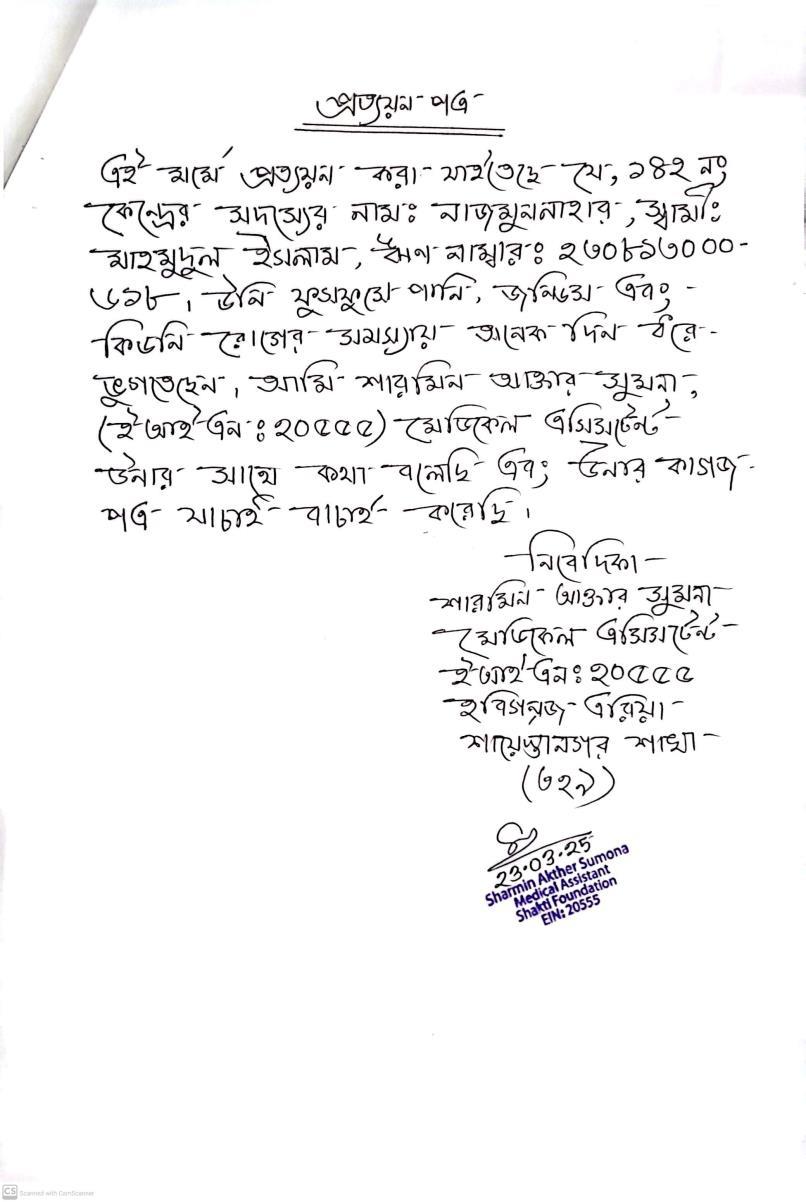 প্রত্যয়ন পত্র
এই মর্মে প্রত্যয়ন করা যাইতেছে যে, ১৪২ নং
কেন্দ্রের সদস্যের নাম: নাজমুননাহার, স্বামী:
মাহমুদুল ইসলাম, ঋণ নাম্বার: ২৩০৮১৩০০০-
৬১৮, উনি ফুসফুসে পানি, জন্ডিস এবং
কিডনি রোগের সমস্যায় অনেক দিন ধরে
ভুগতেছেন, আমি শারমিন আক্তার সুমনা,
(ই আই এন: ২০৫৫৫) মেডিকেল এসিসটেন্ট
উনার সাথে কথা বলেছি এবং উনার কাগজ
পত্র যাচাই বাচাই করেছি।
নিবেদিকা
শারমিন আক্তার সুমনা
মেডিকেল এসিসটেন্ট
ই আই এন: ২০৫৫৫
হবিগন্জ এরিয়া
শায়েস্তানগর শাখা
(৩২৯)
23.03.25
Sharmin Akther Sumona
Medical Assistant
Shakti Foundation
EIN: 20555
CS Scanned with CamScanner